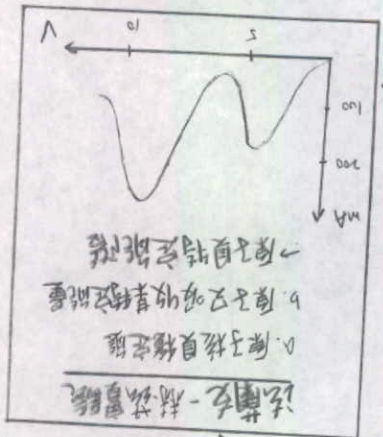 法蘭克-赫茲實驗
a. 原子核具穩定態
b. 原子只吸收某特定能量
→原子具特定能階
mA
200
100
5
10
V